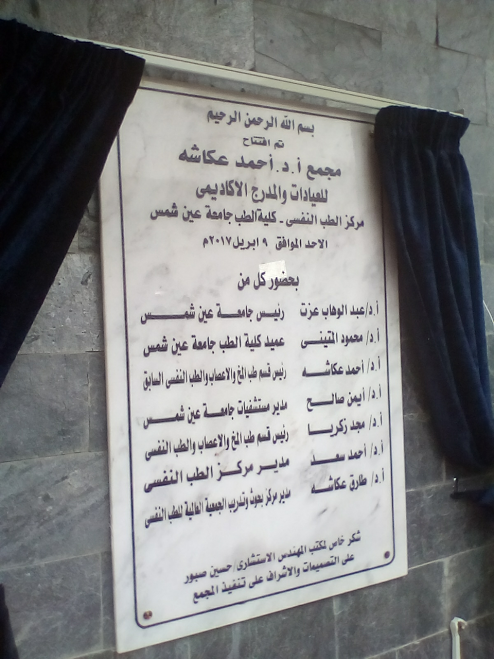 بسم الله الرحمن الرحيم
تم افتتاح
مجمع أ.د. أحمد عكاشه
للعيادات والمدرج الأكاديمى
مركز الطب النفسى - كلية الطب جامعة عين شمس
الاحد الموافق ٩ ابريل ٢٠١٧م
بحضور كل من
أ.د/ عبد الوهاب عزت رئيس جامعة عين شمس
أ.د/ محمود المتينى عميد كلية الطب جامعة عين شمس
أ.د/ أحمد عكاشه رئيس قسم طب المخ والاعصاب والطب النفسى السابق
أ.د/ أيمن صالح مدير مستشفيات جامعة عين شمس
أ.د/ مجد زكريا رئيس قسم طب المخ والاعصاب والطب النفسى
أ.د/ أحمد سعد مدير مركز الطب النفسى
أ.د/ طارق عكاشه مدير مركز بحوث وتدريب الجمعية العالمية للطب النفسى
شكر خاص لمكتب المهندس الاستشارى/ حسين صبور
على التصميمات والاشراف على تنفيذ المجمع